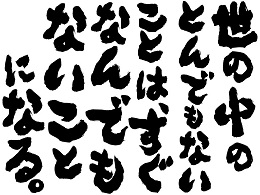 世の中の
とんでもない
ことは、すぐ
なんでも
ないこと
になる。